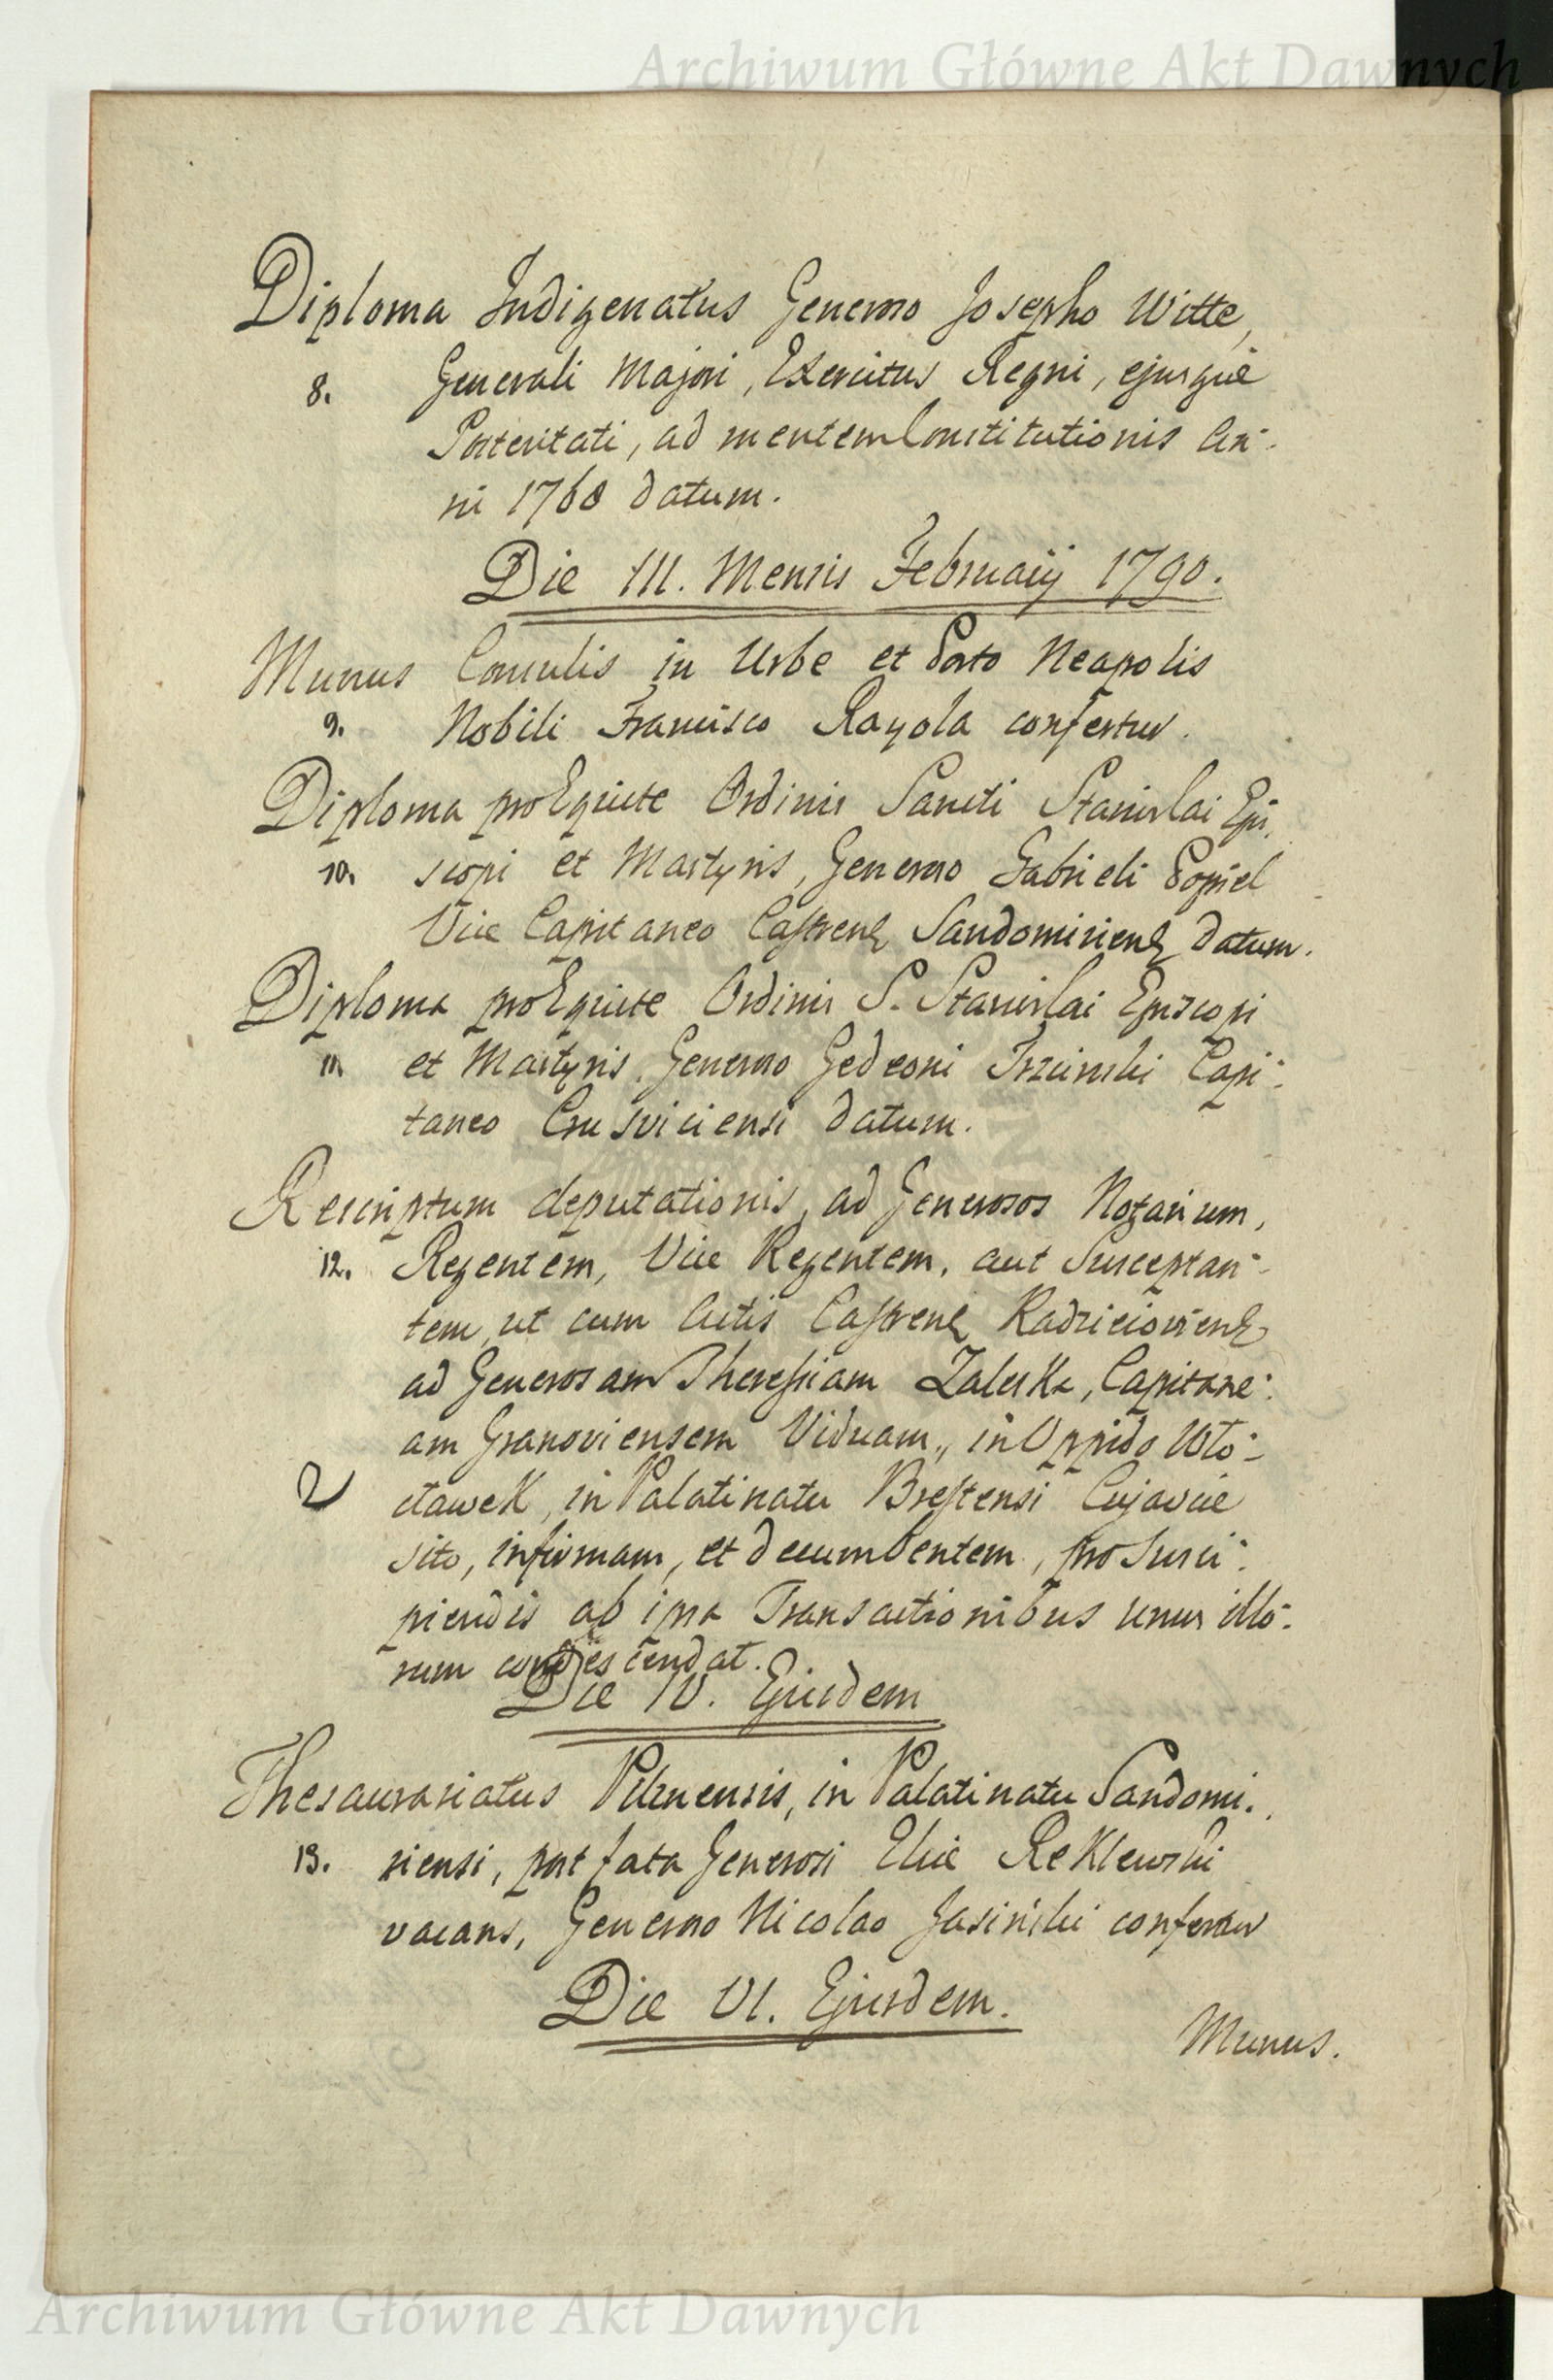 Archiwum Główne Akt Dawnych
Diploma Indigenatus Generoso Josepho Witte,
8. Generali Majori, Exercitus Regni, ejusque
Posteritati, ad mentem Constitutionis An-
ni 1768 datum.
Die III. Mensis Februarij 1790.
Munus Consulis in Urbe et Porto Neapolis
9. Nobili Francisco Rayola confertur.
Diploma pro Equite Ordinis Sancti Stanislai Epi-
10. scopi et Martyris, Generoso Gabrieli Popiel
Vice Capitaneo Castrens Sandomiriens datum.
Diploma pro Equite Ordinis S. Stanislai Episcopi
11. et Martyris, Generoso Gedeoni Trzcinski Capi-
taneo Crusviciensi datum.
Rescriptum deputationis, ad Generosos Notarium,
12. Regentem, Vice Regentem, aut Susceptan-
tem, ut cum Actis Castrens Radzieioviens
ad Generosam Theressiam Zaleska, Capitane-
am Granoviensem Viduam, in Oppido Wło-
cławek, in Palatinatu Brestensi Cujaviæ
sito, infirmam, et decumbentem, pro Susci-
piendis ab ipsa Transactionibus unus illo-
rum condescendat.
Die IV. Ejusdem
Thesaurariatus Pilznensis, in Palatinatu Sandomi-
13. riensi, post fata Generosi Eliæ Reklewski
vacans, Generoso Nicolao Jasiński confertur
Die VI. Ejusdem.
Munus.
Archiwum Główne Akt Dawnych